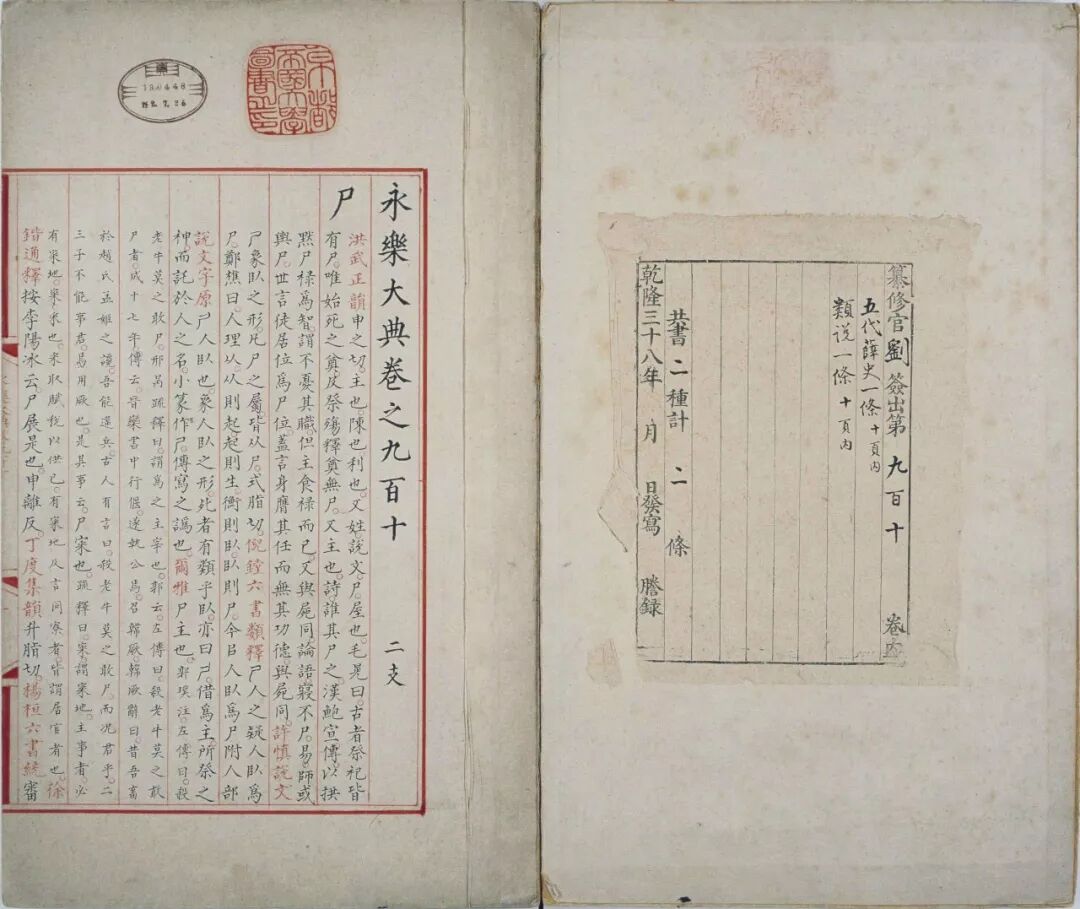 纂修官劉 簽出第 九百十 卷
五代薛史一條 十頁内
類説一條 十頁内
共書二種計 二 條
乾隆三十八年 月 日發寫 謄録
京都帝國大學圖書之印
永樂大典卷之九百十 二支
尸
洪武正韻申之切。主也。陳也。利也。又姓。說文。尸。屋也。毛晃曰。古者祭祀皆
有尸。唯始死之奠。及祭殤釋奠無尸。又主也。詩。誰其尸之。漢鮑宣傳。以拱
黙尸禄為智。謂不憂其職。但主食禄而已。又與屍同。論語寢不尸。易。師或
輿尸。世言徒居位為尸位。蓋言身膺其任而無其功德。與屍同。許慎說文
尸象臥之形。凡尸之屬皆从尸。式脂切。倪鏜六書類釋尸人之疑人臥為
尸。鄭樵曰。人理以从則起。起則生。衡則臥。臥則尸。今㠯人臥為尸附人部
說文字原尸人臥也。象人臥之形。死者有類乎臥。亦曰尸。借為主。所祭之
神。而託於人之名。小篆作尸。傳寫之譌也。爾雅尸主也。郭璞注。左傳曰。殺
老牛莫之敢尸。邢昺疏釋曰。謂為之主宰也。郭云。左傳曰。殺老牛莫之敢
尸者。成十七年傳云。晉欒書中行偃。遂執公焉。召韓厥。韓厥辭曰。昔吾畜
於趙氏。孟姬之讒。吾能違兵。古人有言曰。殺老牛莫之敢尸。而况君乎。二
三子不能事君。焉用厥也。是其事云。尸寀也。疏釋曰。寀。謂寀地。主事者。必
有寀地。寀。采也。采取賦稅以供已。有寀地。及言同寮者。皆謂居官者也。徐
鍇通釋按李陽冰云。尸展是也。申離反。丁度集韻升脂切。楊桓六書統審